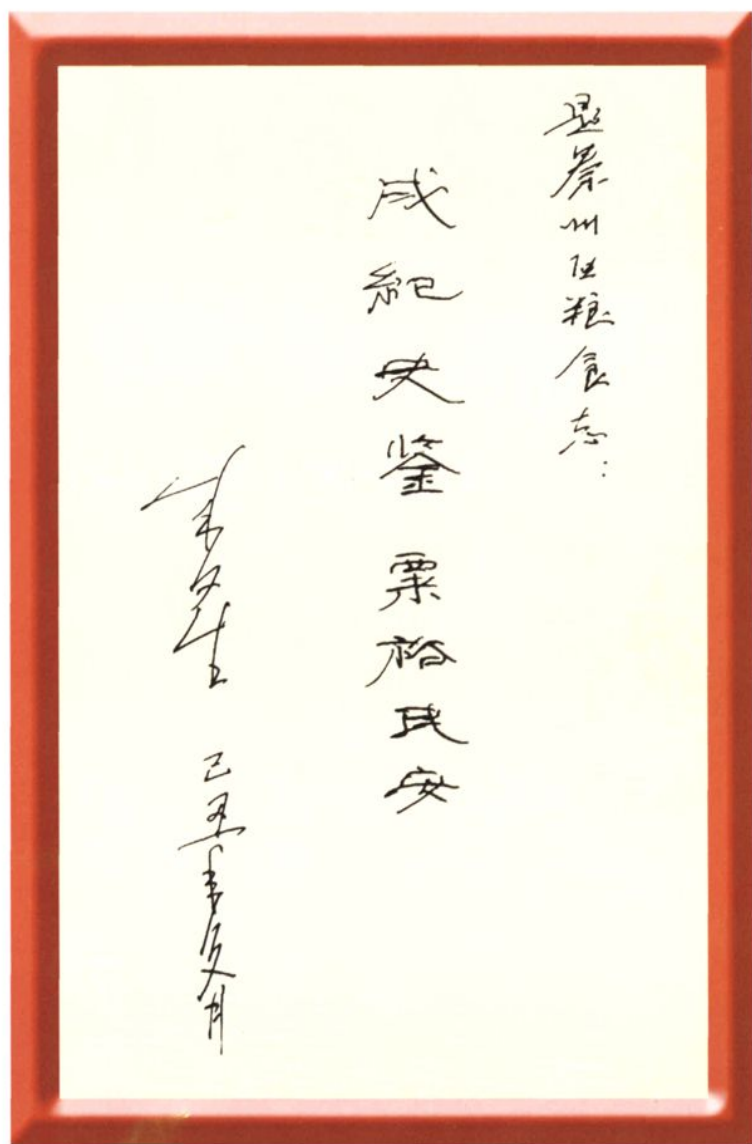 题秦州区粮食志:
成紀史鉴 粟裕民安
己丑年夏月